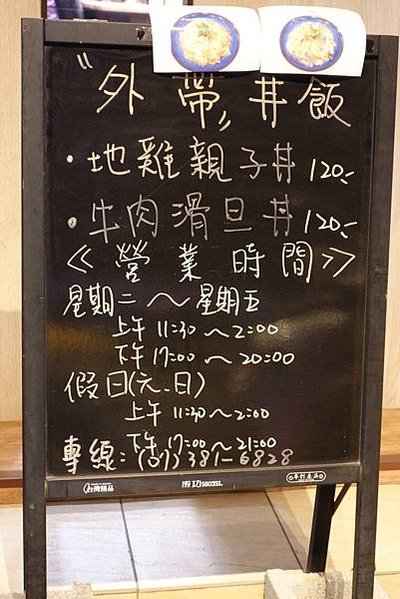 "外帶"丼飯
・地雞親子丼 120.-
・牛肉滑旦丼 120.-
《營業時間》
星期二～星期五
上午 11:30～2:00
下午 17:00～20:00
假日(六.日)
上午 11:30～2:00
下午 17:00～21:00
專線:(07)381-6828
台灣精品 成功 success.